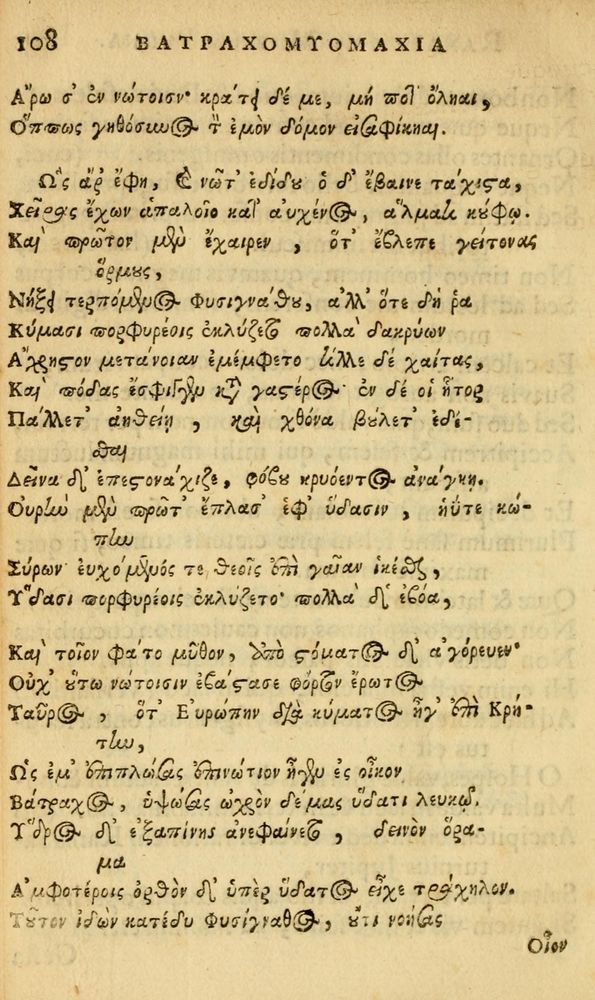 108 ΒΑΤΡΑΧΟΜΥΟΜΑΧΙΑ
Αἴρω σ' ἐν νώτοισιν· κράτει δέ με, μή ποτ' ὄληαι,
Ὅππως γηθόσυνος τ' ἐμὸν δόμον εἰσαφίκηαι.
Ὣς ἄρ' ἔφη, καὶ νῶτ' ἐδίδου ὁ δ' ἔβαινε τάχιστα,
Χεῖρας ἔχων ἁπαλοῖο κατ' αὐχένος, ἅλματι κούφῳ.
Καὶ πρῶτον μὲν ἔχαιρεν, ὅτ' ἔβλεπε γείτονας
ὅρμους,
Νήξει τερπόμενος Φυσιγνάθου, ἀλλ' ὅτε δή ῥα
Κύμασι πορφυρέοις ἐκλύζετο πολλὰ δακρύων
Ἄχρηστον μετάνοιαν ἐμέμφετο τίλλε δέ χαίτας,
Καὶ πόδας ἔσφιγγεν κατὰ γαστέρος· ἐν δέ οἱ ἦτορ
Πάλλετ' ἀηθείῃ, καὶ χθόνα βούλετ' ἐδέ-
σθαι
Δεῖνα δ' ἐπεστονάχιζε, φόβου κρυόεντος ἀνάγκῃ.
Οὐρὴν μὲν πρῶτ' ἔπλασ' ἐφ' ὕδασιν, ἠΰτε κώ-
πην
Σύρων· εὐχόμενός τε θεοῖς ἐπὶ γαῖαν ἱκέσθαι,
Ὕδασι πορφυρέοις ἐκλύζετο· πολλὰ δ' ἐβόα,
Καὶ τοῖον φάτο μῦθον, ἀπὸ στόματος δ' ἀγόρευεν·
Οὐχ' οὕτω νώτοισιν ἐβάστασε φόρτον ἔρωτος
Ταῦρος, ὅτ' Εὐρώπην διὰ κύματος ἦγ' ἐπὶ Κρή-
την,
Ὡς ἐμ' ἐπιπλώσας ἐπινώτιον ἦγεν ἐς οἶκον
Βάτραχος, ὑψώσας ὠχρὸν δέμας ὕδατι λευκῷ.
Ὕδρος δ' ἐξαπίνης ἀνεφαίνετο, δεινὸν ὅρα-
μα
Ἀμφοτέροις ὀρθὸν δ' ὑπὲρ ὕδατος εἶχε τράχηλον.
Τοῦτον ἰδὼν κατέδυ Φυσίγναθος, οὔτι νοήσας
Οἷον